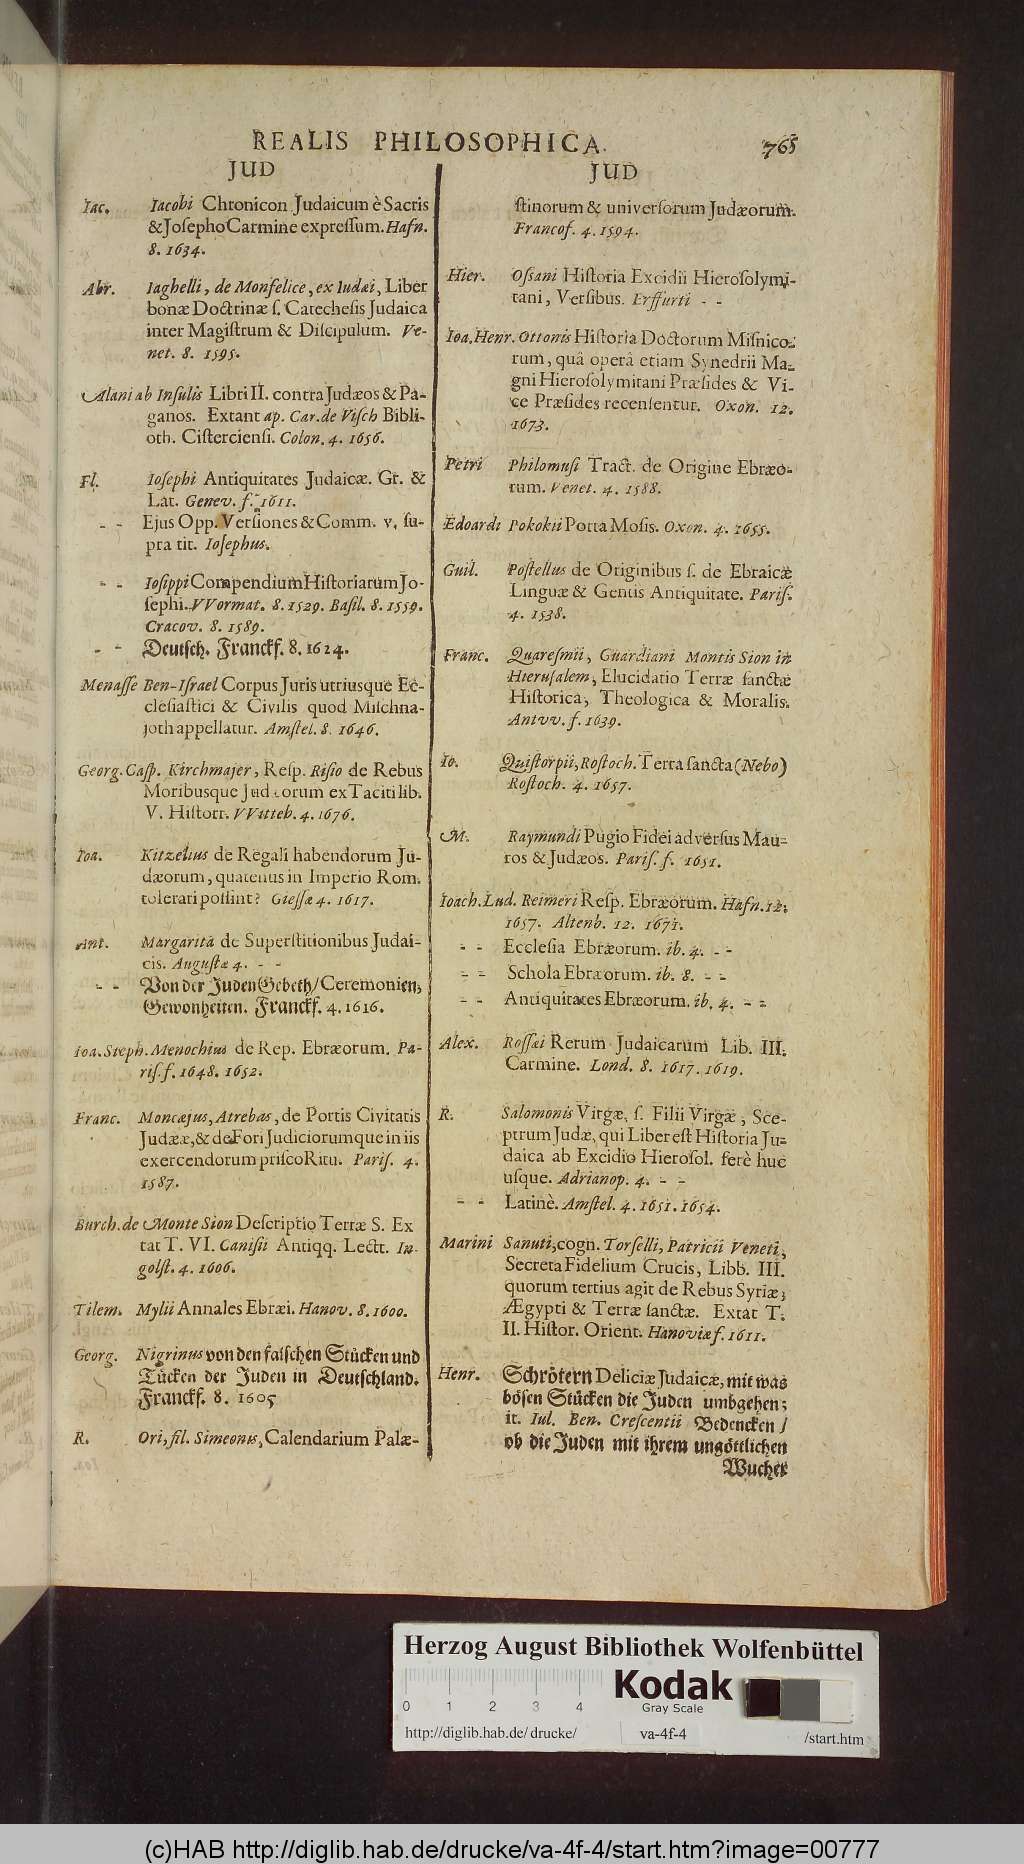 REALIS PHILOSOPHICA.
765
JUD
Iac. Iacobi Chronicon Judaicum è Sacris
& Joſepho Carmine expreſſum. Hafn.
8. 1634.
Abr. Iaghelli, de Monfelice, ex Iudæi, Liber
bonæ Doctrinæ ſ. Catecheſis Judaica
inter Magiſtrum & Diſcipulum. Ve-
net. 8. 1595.
Alani ab Inſulis Libri II. contra Judæos & Pa-
ganos. Extant ap. Car. de Viſch Bibli-
oth. Ciſtercienſi. Colon. 4. 1656.
Fl. Ioſephi Antiquitates Judaicæ. Gr. &
Lat. Genev. f. 1611.
- - Ejus Opp. Verſiones & Comm. v. ſu-
pra tit. Ioſephus.
- - Ioſippi Compendium Hiſtoriarum Jo-
ſephi. VVormat. 8. 1529. Baſil. 8. 1559.
Cracov. 8. 1589.
- - Deutſch. Franckf. 8. 1624.
Menaſſe Ben-Iſrael Corpus Juris utriusque Ec-
cleſiaſtici & Civilis quod Miſchna-
joth appellatur. Amſtel. 8. 1646.
Georg. Caſp. Kirchmajer, Reſp. Riſio de Rebus
Moribusque Judæorum ex Taciti lib.
V. Hiſtorr. VVitteb. 4. 1676.
Ioa. Kitzelius de Regali habendorum Ju-
dæorum, quatenus in Imperio Rom.
tolerari poſſint? Gieſſæ 4. 1617.
Ant. Margarita de Superſtitionibus Judai-
cis. Auguſtæ 4. - -
- - Von der Juden Gebeth/ Ceremonien,
Gewonheiten. Franckf. 4. 1616.
Ioa. Steph. Menochius de Rep. Ebræorum. Pa-
riſ. f. 1648. 1652.
Franc. Moncæjus, Atrebas, de Portis Civitatis
Judææ, & de Fori Judiciorumque in iis
exercendorum priſco Ritu. Pariſ. 4.
1587.
Burch. de Monte Sion Deſcriptio Terræ S. Ex
tat T. VI. Caniſii Antiqq. Lectt. In-
golſt. 4. 1606.
Tilem. Mylii Annales Ebræi. Hanov. 8. 1600.
Georg. Nigrinus von den falſchen Stücken und
Tücken der Juden in Deutſchland.
Franckf. 8. 1605
R. Ori, fil. Simeonis, Calendarium Palæ-
JUD
ſtinorum & univerſorum Judæorum.
Francof. 4. 1594.
Hier. Oſſani Hiſtoria Excidii Hieroſolymi-
tani, Verſibus. Erffurti - -
Ioa. Henr. Ottonis Hiſtoria Doctorum Miſnico-
rum, quâ operâ etiam Synedrii Ma-
gni Hieroſolymitani Præſides & Vi-
ce Præſides recenſentur. Oxon. 12.
1673.
Petri Philomuſi Tract. de Origine Ebræo-
rum. Venet. 4. 1588.
Edoardi Pokokii Porta Moſis. Oxon. 4. 1655.
Guil. Poſtellus de Originibus ſ. de Ebraicæ
Linguæ & Gentis Antiquitate. Pariſ.
4. 1538.
Franc. Quareſmii, Guardiani Montis Sion in
Hieruſalem, Elucidatio Terræ ſanctæ
Hiſtorica, Theologica & Moralis.
Antvv. f. 1639.
Io. Quiſtorpii, Roſtoch. Terra ſancta (Nebo)
Roſtoch. 4. 1657.
M. Raymundi Pugio Fidei adverſus Mau-
ros & Judæos. Pariſ. f. 1651.
Ioach. Lud. Reimeri Reſp. Ebræorum. Hafn. 12.
1657. Altenb. 12. 1671.
- - Eccleſia Ebræorum. ib. 4. - -
- - Schola Ebræorum. ib. 8. - -
- - Antiquitates Ebræorum. ib. 4. - -
Alex. Roſſæi Rerum Judaicarum Lib. III.
Carmine. Lond. 8. 1617. 1619.
R. Salomonis Virgæ, ſ. Filii Virgæ, Sce-
ptrum Judæ, qui Liber eſt Hiſtoria Ju-
daica ab Excidio Hieroſol. ferè huc
uſque. Adrianop. 4. - -
- - Latinè. Amſtel. 4. 1651. 1654.
Marini Sanuti, cogn. Torſelli, Patricii Veneti,
Secreta Fidelium Crucis, Libb. III.
quorum tertius agit de Rebus Syriæ,
Ægypti & Terræ ſanctæ. Extat T.
II. Hiſtor. Orient. Hanoviæ f. 1611.
Henr. Schrötern Deliciæ Judaicæ, mit was
böſen Stücken die Juden umbgehen;
it. Iul. Ben. Creſcentii Bedencken /
ob die Juden mit ihrem ungöttlichen
Wucher
Herzog August Bibliothek Wolfenbüttel
0 1 2 3 4
Kodak
Gray Scale
http://diglib.hab.de/drucke/ va-4f-4 /start.htm
(c)HAB http://diglib.hab.de/drucke/va-4f-4/start.htm?image=00777